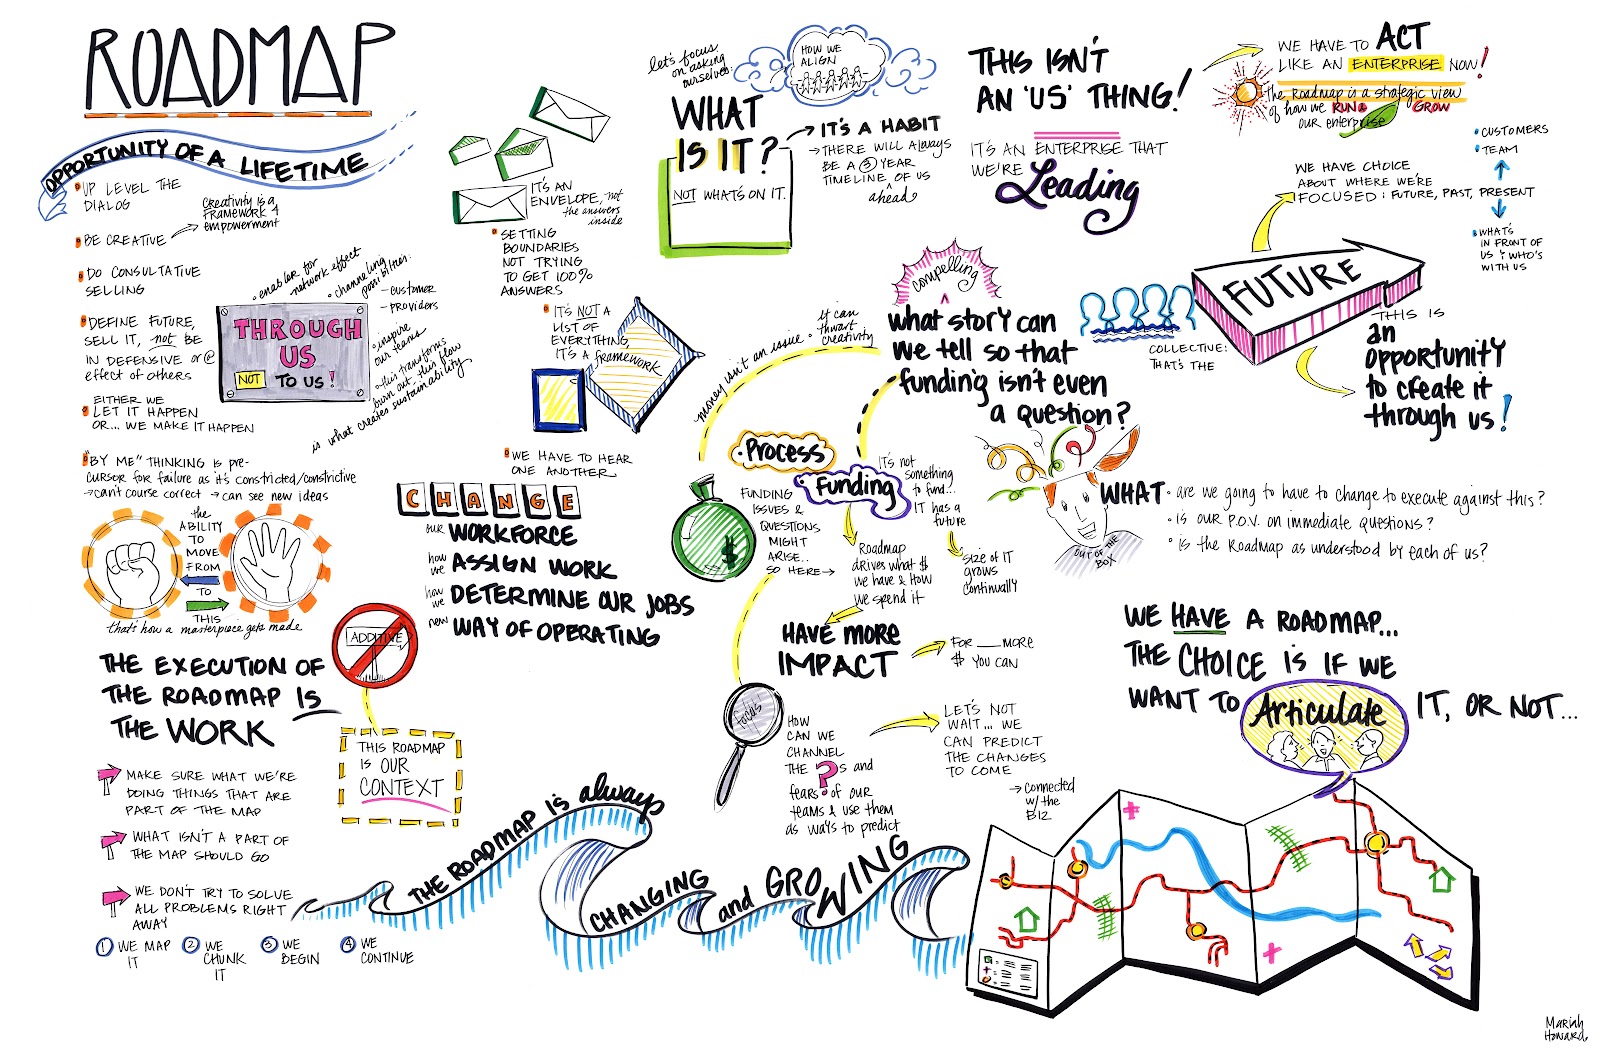 ROADMAP
OPPORTUNITY OF A LIFETIME
UP LEVEL THE
DIALOG
BE CREATIVE
Creativity is a
FRAMEWORK 4
empowerment
DO CONSULTATIVE
SELLING
DEFINE FUTURE,
SELL IT, not BE
IN DEFENSIVE or @
effect of others
EITHER WE
LET IT HAPPEN
OR... WE MAKE IT HAPPEN
"BY ME" THINKING IS PRE-
CURSOR FOR FAILURE as it's constricted/constrictive
→ can't course correct → can see new ideas
enabler for
network effect
channeling
possibilities
– customer
– providers
THROUGH
US
NOT TO US!
inspire
our teams
this transforms
burn out, this flow
is what creates sustainability
the
ABILITY
TO
MOVE
FROM
TO
THIS
that's how a masterpiece gets made
THE EXECUTION OF
THE ROADMAP IS
THE WORK
ADDITIVE
THIS ROADMAP
IS OUR
CONTEXT
MAKE SURE WHAT WE'RE
DOING THINGS THAT ARE
PART OF THE MAP
WHAT ISN'T A PART OF
THE MAP SHOULD GO
WE DON'T TRY TO SOLVE
ALL PROBLEMS RIGHT
AWAY
1 WE MAP
IT
2 WE
CHUNK
IT
3 WE
BEGIN
4 WE
CONTINUE
IT'S AN
ENVELOPE, not
the answers
inside
SETTING
BOUNDARIES
NOT TRYING
TO GET 100%
ANSWERS
IT'S NOT A
LIST OF
EVERYTHING,
IT'S A framework
WE HAVE TO HEAR
ONE ANOTHER.
CHANGE
our WORKFORCE
how we ASSIGN WORK
how we DETERMINE OUR JOBS
new WAY OF OPERATING
THE ROADMAP IS always
CHANGING and GROWING
let's focus
on asking
ourselves:
HOW WE
ALIGN
WHAT
IS IT?
NOT WHAT'S ON IT.
→ IT'S A HABIT
→ THERE WILL AlWAYS
BE A 3 YEAR
TIMELINE OF US
ahead
THIS ISN'T
AN 'US' THING!
IT'S AN ENTERPRISE THAT
WE'RE Leading
WE HAVE TO ACT
LIKE AN ENTERPRISE NOW!
the Roadmap is a strategic view
of how we RUN & GROW
our enterprise
WE HAVE CHOICE
ABOUT WHERE WE'RE
FOCUSED: FUTURE, PAST, PRESENT
CUSTOMERS
TEAM
WHAT'S
IN FRONT OF
US & WHO'S
WITH US
FUTURE
COLLECTIVE:
THAT'S THE
THIS IS
an
opportunity
to create it
through us!
compelling
what story can
we tell so that
funding isn't even
a question?
money isn't an issue
it can
thwart
creativity
Process
Funding
FUNDING
ISSUES &
QUESTIONS
MIGHT
ARISE..
SO HERE →
It's not
something
to fund...
IT has a
future
Roadmap
drives what $
we have & HOW
we spend it
size of IT
grows
continually
HAVE MORE
IMPACT
FOR ___ MORE
$ YOU CAN
focus
HOW
CAN WE
CHANNEL
THE ?s and
fears of our
teams & use them
as ways to predict
LET'S NOT
WAIT... WE
CAN PREDICT
THE CHANGES
TO COME
→ connected
w/ the
BIZ
OUT OF THE
BOX
WHAT
are we going to have to change to execute against this?
is our P.O.V. on immediate questions?
is the Roadmap as understood by each of us?
WE HAVE A ROADMAP...
THE CHOICE IS IF WE
WANT TO Articulate IT, OR NOT...
Mariah
Howard